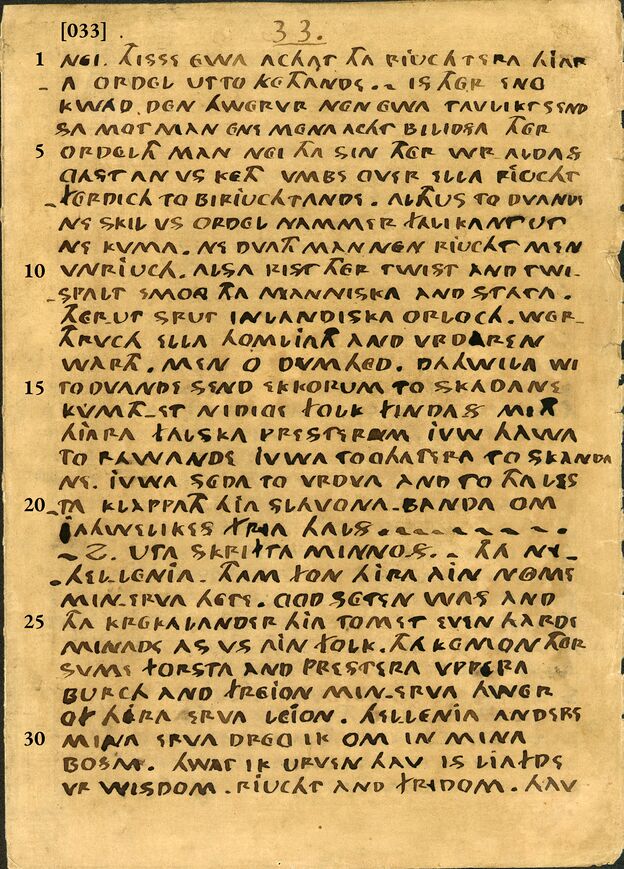 [033]
33.
1 NEI. THISSE EWA ACHATH THA RIUCHTERA HIAR
- A ORDEL UT TO KETHANDE.~ IS THER ENG
KWAD DEN HWERVR NEN EWA TAVLIKT SEND
SA MOT MAN ENE MENA ACHT BILIDSA THER
5 ORDELTH MAN NEI THA SIN THER WR.ALDAS
GAST AN VS KETH VMBE OVER ELLA RIUCHT
-FERDICH TO BIRIUCHTANDE. ALTHUS TO DVANDE
NE SKIL VS ORDEL NAMMER FALIKANT UT
NE KVMA. NE DVATH MAN NEN RIUCHT MEN
10 VNRIUCH. ALSA RIST THER TWIST AND TWI-
-SPALT EMONG THA MANNISKA AND STATA.
THER-UT SPUT INLANDISKA ORLOCH. WER-
THRVCH ELLA HOMLIATH AND VRDAREN
WARTH. MEN O DVMHED. DAHWILA WI
15 TO DVANDE SEND EKKORUM TO SKADANE
KVMTH-ET NIDIGE FOLK FINDAS MITH
HIARA FALSKA PRESTERUM IVW HAWA
TO RAWANDE IVWA TOGHATERA TO SKANDA
NE. IVWA SEDA TO VRDVA AND TO THA LES
20 -TA KLAPPATH HIA SLAVONA-BANDA OM
JAHWELIKES FRIA HALS.~
~ 2. UTA SKRIFTA MINNOS.~ THA NY-
-HELLENIA. THAM FON HIRA AIN NOME
MIN-ERVA HETE. GOD SETEN WAS AND
25 THA KREKALANDER HIA TO MET EVEN HARDE
MINADE AS VS AIN FOLK. THA KEMON THER
SVME FORSTA AND PRESTERA VPPERA
BURCH AND FREION MIN-ERVA HWER
OF HIRA ERVA LEION. HELLENIA ANDERE
30 MINA ERVA DREG IK OM IN MINA
BOSM. HWAT IK URVEN HAV IS LIAFDE
VR WISDOM. RIUCHT AND FRIDOM. HAV